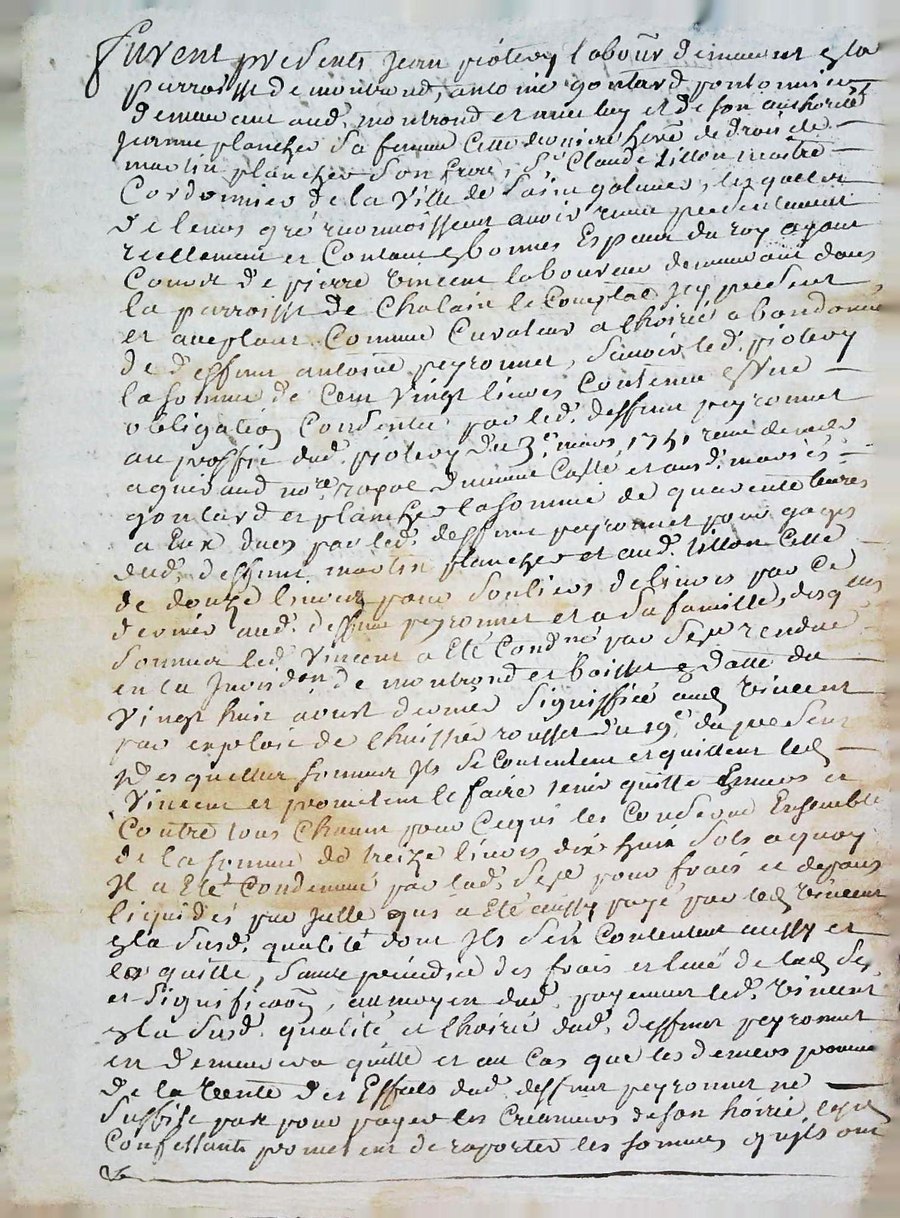 furent presents jean piotevy labour demeurant en la
parroisse de montrond, antoine goutard pontonnier
demeurant aud. montrond et avec luy et de son authorité
jeanne planchet sa femme cette derniere heré de droit de
martin planchet son frere, Sr Claude tillon maitre
Cordonnier de la ville de Saint galmier, lesquels
de leurs gré reconnoissent avoir reçu presentement
reellement et Contant en bonnes Especes du roy ayant
Cours de pierre vincent laboureur demeurant dans
la parroisse de Chalain le Comptal icy present
et acceptant Comme Curateur a lhoirie abandonnée
de deffunt antoine peyronnet, Sçavoir led. piotevy
la somme de Cent vingt livres Contenue en une
obligation Consentie par led. deffunt peyronnet
au proffit dud. piotevy du 3e mars 1751 reçue
not.re royal et ausd. mariés
goutard et planchet la somme de quarente livres
a Eux dues par led. deffunt peyronnet pour gages
dud. deffunt martin planchet et aud. tillon Celle
de douze livres pour souliers delivrés par ce
dernier aud. deffunt peyronnet et a sa famille, desquelles
sommes led. vincent a eté Cond.né par Sentence rendue
en la Jurisdon de montrond et boisset en datte du
vingt huit aoust dernier Signiffiée aud vincent
par exploit de lhuissier rousset du 19e du present
Desquelles sommes ils se contentent et quittent led
vincent et promettent le faire tenir quitte Envers et
Contre tous Chacun pour Ce qui les Concerne Ensemble
de la somme de treize livres dix huit sols a quoy
Il a Eté Condemné par lad. Sentence pour frais et depans
liquidés par Icelle qui a Eté aussy payé par led vincent
en la susd. qualité dont ils s'en Contentent aussy et
le quitte, Sans prejudice des frais et levé de lad Sentence
et Signification, au moyen dud. payement led. vincent
en la susd. qualité et lhoirie dud. deffunt peyronnet
en demeurera quitte et au Cas que les deniers provenus
de la vente des Effets dud. deffunt peyronnet ne
suffise pas pour payer les Creanciers de son hoirie, lesd
Confessants promettent de raporter les sommes qu'ils ont